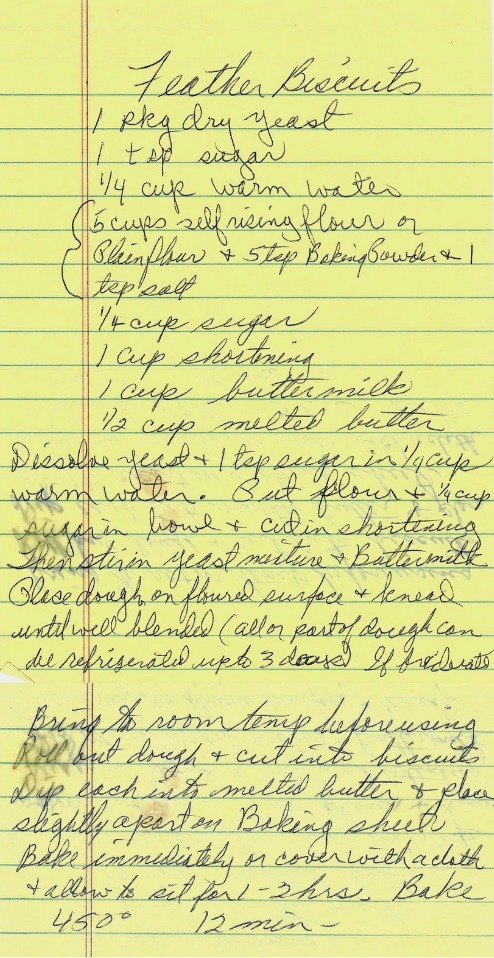 Feather Biscuits
1 pkg dry yeast
1 tsp sugar
1/4 cup warm water
5 cups self rising flour or
Plain flour + 5 tsp Baking Powder + 1
tsp salt
1/4 cup sugar
1 cup shortening
1 cup buttermilk
1/2 cup melted butter
Dissolve yeast + 1 tsp sugar in 1/4 cup
warm water. Put flour + 1/4 cup
sugar in bowl + cut in shortening
Then stir in yeast mixture + Buttermilk
Place dough on floured surface + knead
until well blended (all or part of dough can
be refrigerated up to 3 days) If
Bring to room temp before using
Roll out dough + cut into biscuits
Dip each into melted butter + place
slightly apart on Baking sheet
Bake immediately or cover with a cloth
+ allow to sit for 1-2 hrs. Bake
450° 12 min -